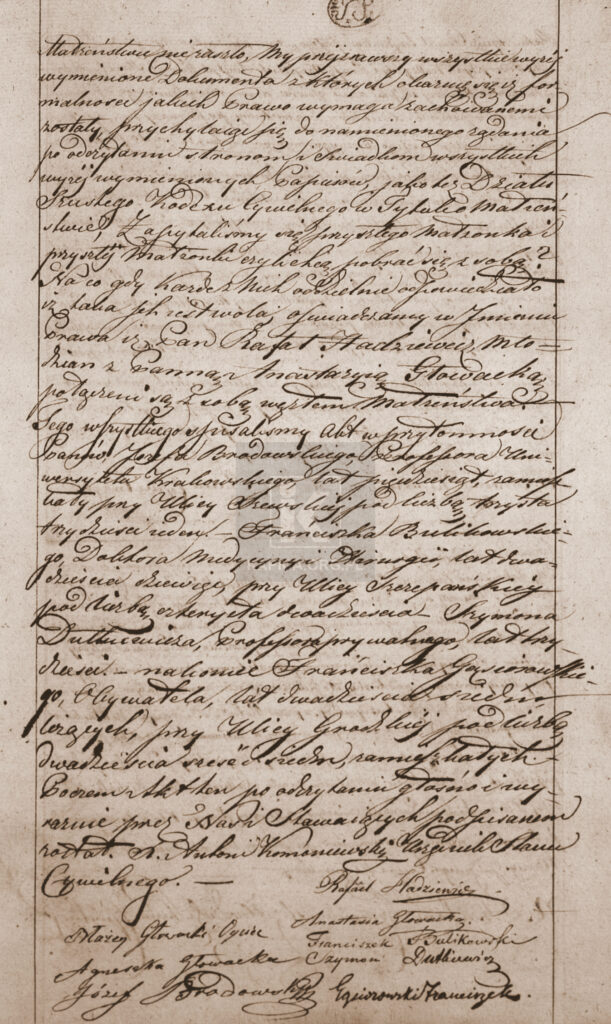 Małżeństwu nie zaszło, My przejrzawszy wszystkie wyżej
wymienione Dokumenta z których okazuje się iż for-
malności jakich Prawo wymaga zachowanemi
zostały, przychylając się do namienionego żądania
po odczytaniu stronom i Świadkom wszystkich
wyżej wymienionych Papierów, jako też Działu
Szóstego Kodexu Cywilnego w Tytule o Małżeń-
stwie, Zapytaliśmy się przyszłego Małżonka i
przyszłej Małżonki czyli chcą pobrać się z sobą?
Na co gdy każde z Nich oddzielnie odpowiedziało
iż taka ich jest wola, oświadczamy w Imieniu
Prawa iż Pan Rafał Hadziewicz Mło-
dzian z Panną Anastazyą Głowacką
połączeni są z sobą węzłem Małżeństwa.
Tego wszystkiego spisaliśmy Akt w przytomności
Panów Józefa Brodowskiego Professora Uni-
wersytetu Krakowskiego, lat pięćdziesiąt, zamiesz-
kały przy Ulicy Szewskiej pod liczbą trzysta
trzydzieści ieden. – Franciszka Bulikowskie-
go, Doktora Medycyny i Chirurgii, lat dwa-
dzieścia dziewięć, przy Ulicy Szczepańskiej
pod liczbą czterysta dwadzieścia Szymona
Dutkiewicza, Professora prywatnego, lat trzy-
dzieści – nakoniec Franciszka Gąsiorowskie-
go, Obywatela, lat dwadzieścia siedm
liczących, przy Ulicy Grodzkiej pod liczbą
dwadzieścia sześć i siedm, zamieszkałych.
Poczem Akt ten po odczytaniu głośno i wy-
raźnie przez Nas i Stawaiących podpisanem
został. X. Antoni Komoniewski Urzędnik Stanu
Cywilnego. –
Rafael Hadziewicz
Anastasia Głowacka.
Maciej Głowacki Ojciec
Franciszek Bulikowski
Agneszka Głowacka
Szymon Dutkiewicz
Józef Brodowski
Gąsiorowski Franciszek.